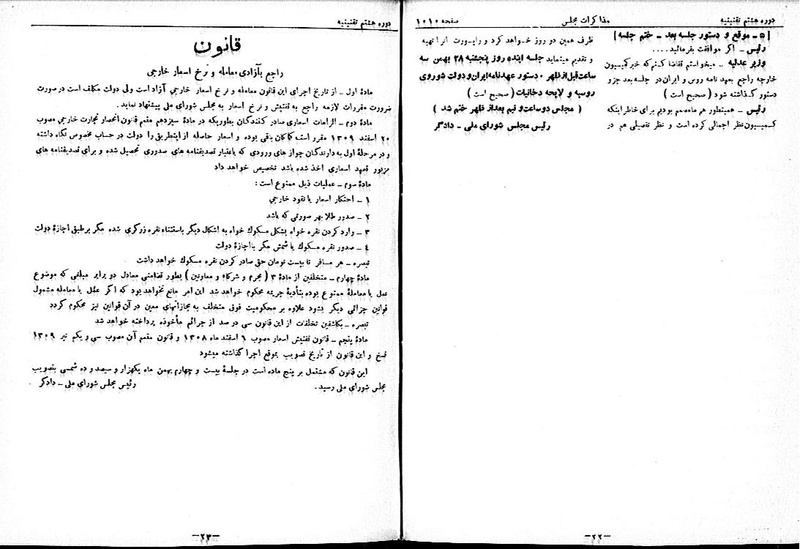 دوره هشتم تقنینیه
مذاکرات مجلس
صفحه ۱۰۱۰
[ ۵ - موقع و دستور جلسه بعد - ختم جلسه ]
رئیس - اگر موافقت بفرمائید....
وزیر عدلیه - میخواستم تقاضا کنم که خبر کمیسیون
خارجه راجع بعهدنامه روس و ایران در جلسه بعد جزو
دستور گذاشته شود ( صحیح است )
رئیس - همینطور هم مصمم بودیم برای خاطر اینکه
کمیسیون نظر اجمالی کرده است و نظر تفصیلی هم در
ظرف همین دو روز خواهد کرد و راپورت آنرا تهیه
و تقدیم مینماید جلسه آینده روز پنجشنبه ۲۸ بهمن سه
ساعت قبل از ظهر . دستور عهدنامه ایران و دولت شوروی
روسیه و لایحه دخانیات ( صحیح است )
( مجلس دو ساعت و نیم بعد از ظهر ختم شد )
رئیس مجلس شورای ملی - دادگر
—۲۲—
دوره هشتم تقنینیه
قانون
راجع بآزادی معامله و نرخ اسعار خارجی
مادهٔ اول - از تاریخ اجرای این قانون معامله و نرخ اسعار خارجی آزاد است ولی دولت مکلف است در صورت
ضرورت مقررات لازمه راجع به تفتیش و نرخ اسعار به مجلس شورای ملی پیشنهاد نماید.
مادهٔ دوم - الزامات اسعاری صادر کنندگان بطوریکه در مادهٔ سیزدهم متمم قانون انحصار تجارت خارجی مصوب
۲۰ اسفند ۱۳۰۹ مقرر است کماکان باقی بوده و اسعار حاصله از اینطریق را دولت در حساب مخصوص نگاه داشته
و در مرحلهٔ اول به دارندگان جواز های ورودی که باعتبار تصدیقنامه های صدوری تحصیل شده و برای تصدیقنامه های
مزبور تعهد اسعاری اخذ شده باشد تخصیص خواهد داد
مادهٔ سوم - عملیات ذیل ممنوع است :
۱ - احتکار اسعار یا نقود خارجی
۲ - صدور طلا بهر صورتی که باشد
۳ - وارد کردن نقره خواه بشکل مسکوک خواه به اشکال دیگر باستثناء نقره زرگری شده مگر بر طبق اجازهٔ دولت
۴ - صدور نقره مسکوک یا شمش مگر با اجازهٔ دولت
تبصره - هر مسافر تا بیست تومان حق صادر کردن نقره مسکوک خواهد داشت
مادهٔ چهارم - متخلفین از مادهٔ ۳ ( مجرم و شرکاء و معاونین ) بطور تضامنی معادل دو برابر مبلغی که موضوع
عمل یا معاملهٔ ممنوع بوده بتأدیهٔ جریمه محکوم خواهد شد این امر مانع نخواهد بود که اگر عمل یا معامله مشمول
قوانین جزائی دیگر بشود علاوه بر محکومیت فوق متخلف به مجازاتهای معین در آن قوانین نیز محکوم گردد
تبصره - بکاشفین تخلفات از این قانون سی در صد از جرائم مأخوذه پرداخته خواهد شد
مادهٔ پنجم - قانون تفتیش اسعار مصوب ۶ اسفند ماه ۱۳۰۸ و قانون متمم آن مصوب سی و یکم تیر ۱۳۰۹
فسخ و این قانون از تاریخ تصویب بموقع اجرا گذاشته میشود
این قانون که مشتمل بر پنج ماده است در جلسهٔ بیست و چهارم بهمن ماه یکهزار و سیصد و ده شمسی بتصویب
مجلس شورای ملی رسید.
رئیس مجلس شورای ملی - دادگر
—۲۳—